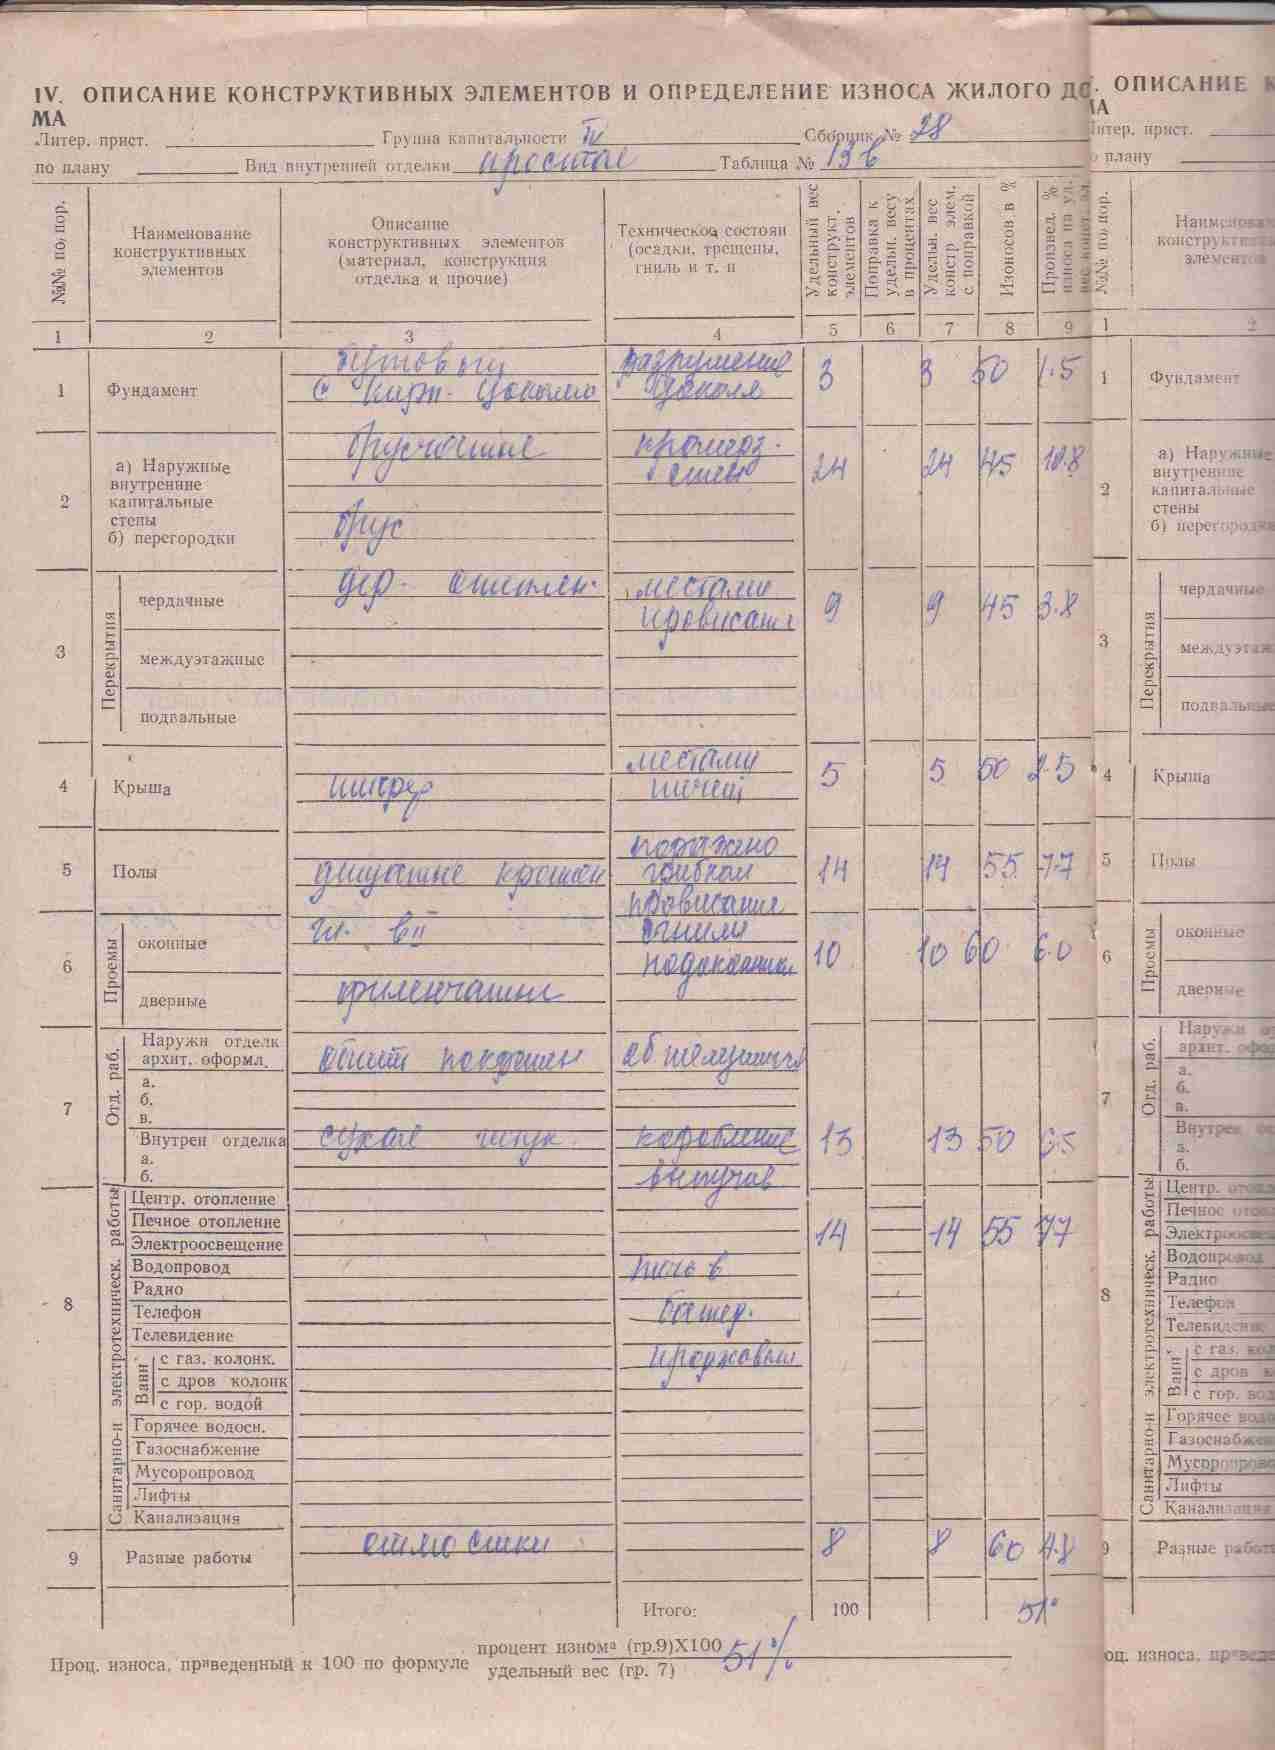 IV. ОПИСАНИЕ КОНСТРУКТИВНЫХ ЭЛЕМЕНТОВ И ОПРЕДЕЛЕНИЕ ИЗНОСА ЖИЛОГО ДО
МА
Литер. прист. Группа капитальности IV Сборник № 28
по плану Вид внутренней отделки простая Таблица № 13в
№№ по пор.
Наименование
конструктивных
элементов
Описание
конструктивных элементов
(материал, конструкция
отделка и прочие)
Техническое состояи
(осадки, трещены,
гниль и т. п
Удельный вес
конструкт.
элементов
Поправка к
удельн. весу
в процентах
Удельн. вес
констр элем.
с поправкой
Изоносов в %
Произвед. %
износа на уд.
вес конст. эл.
1 2 3 4 5 6 7 8 9
1 Фундамент бутовый с кирп. цоколем разрушение цоколя 3 3 50 1.5
2 а) Наружные
внутренние
капитальные
стены
б) перегородки
брусчатые
брус
промерз.
стен
24 24 45 10.8
3 Перекрытия
чердачные дер. отеплен. местами
провисание 9 9 45 3.8
междуэтажные
подвальные
4 Крыша шифер местами
течет 5 5 50 2.5
5 Полы дощатые крашен поражено
грибком
провисание 14 14 55 7.7
6 Проемы
оконные
дверные филенчатые
сгнили
подоконники
10 10 60 6.0
7 Отд. раб.
Наружн отделк
архит. оформл. обшит покрашен
а.
б.
в.
Внутрен отделка сухая штук. коробление 13 13 50 6.5
а.
б.
8 Санитарно-и электротехническ. работы
Центр. отопление
Печное отопление 14 14 55 7.7
Электроосвещение
Водопровод печь в
Радио
Телефон
Телевидение
Ванн
с газ. колонк.
с дров колонк
с гор. водой
Горячее водосн.
Газоснабжение
Мусоропровод
Лифты
Канализация
9 Разные работы отмостки 8 8 60 4.8
Итого: 100 51
Проц. износа, приведенный к 100 по формуле
процент износа (гр.9)X100
удельный вес (гр. 7)
51%
. ОПИСАНИЕ К
МА
Литер. прист.
о плану
№№ по пор.
Наименован
конструктивны
элементов
1 2
1 Фундамент
2 а) Наружные
внутренние
капитальные
стены
б) перегородки
3 Перекрытия
чердачные
междуэтаж
подвальные
4 Крыша
5 Полы
6 Проемы
оконные
дверные
7 Отд. раб.
Наружн о
архит. офо
а.
б.
в.
Внутрен
а.
б.
8 Санитарно-и электротехническ. работы
Центр. отопл
Печное отоп
Электроосве
Водопровод
Радио
Телефон
Телевидени
Ванн
с газ. кол
с дров к
с гор. вод
Горячее водо
Газоснабжен
Мусоропрово
Лифты
Канализация
9 Разные работ
оц. износа, приведе